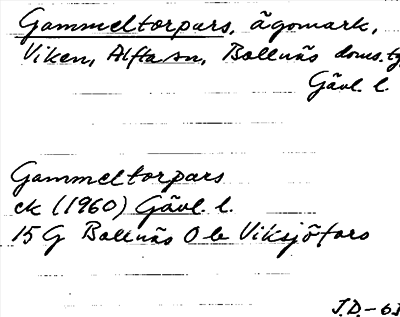 Gammeltorpars, ägomark,
Viken, Alfta sn, Bollnäs doms. tg,
Gävl. l.
Gammeltorpars
ek (1960) Gävl. l.
15 G Bollnäs O b Viksjöfors
J.D.-63